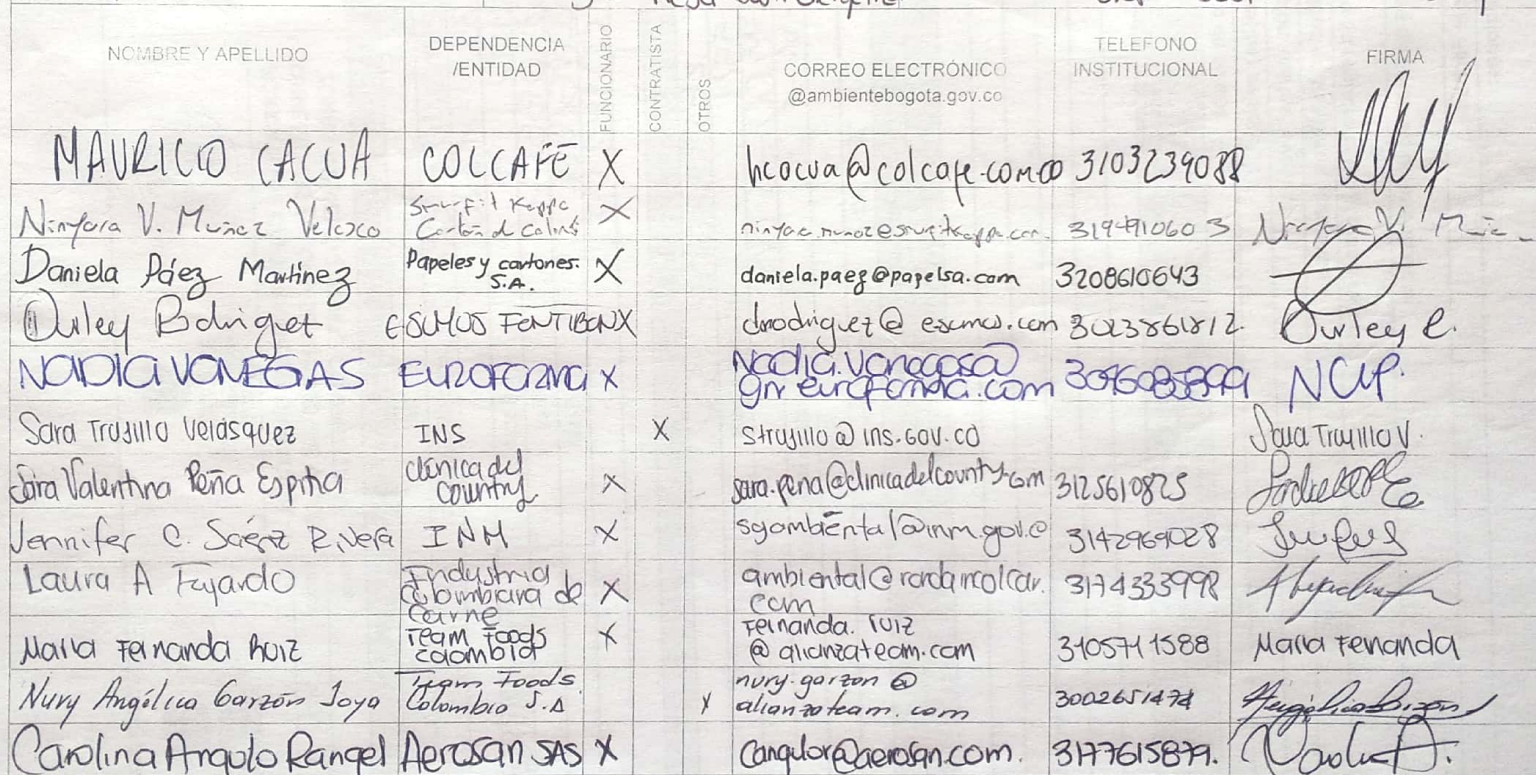 NOMBRE Y APELLIDO
DEPENDENCIA
/ENTIDAD
FUNCIONARIO
CONTRATISTA
OTROS
CORREO ELECTRÓNICO
@ambientebogota.gov.co
TELEFONO
INSTITUCIONAL
FIRMA
MAURICIO CACUA COLCAFE X hcacua@colcafe.com.co 3103239088
V. Muñoz Velasco
Smurfit Kappa
Cartón de Colomb X 3194910603
Daniela Páez Martínez
Papeles y cartones.
S.A. X daniela.paez@papelsa.com 3208610643
Durley Rodriguez ESUMOS FONTIBON X 3013861812. Durley R.
NADIA VANEGAS EUROFARMA X
Nadia.vanegas@
gn eurofarma.com NVP.
Sara Trujillo Velásquez INS X strujillo@ins.gov.co Sara Trujillo V.
Sara Valentina Peña Espitia
clínica del
country X sara.pena@clinicadelcountry.com 3125610825
Jennifer C. Sáenz Rivera INM X sgambiental@inm.gov.co 3142969028
Laura A Fajardo
Industria
Colombiana de
Carne X
ambiental@
com 3174333998
Maria Fernanda Ruiz
Team Foods
Colombia X
Fernanda.ruiz
@alianzateam.com 3105711588 Maria Fernanda
Nury Angélica Garzón Joya
Team Foods
Colombia S.A X
nury.garzon@
alianzateam.com 3002651474
Carolina Angulo Rangel Aerosan SAS X cangulor@aerosan.com. 3177615879.